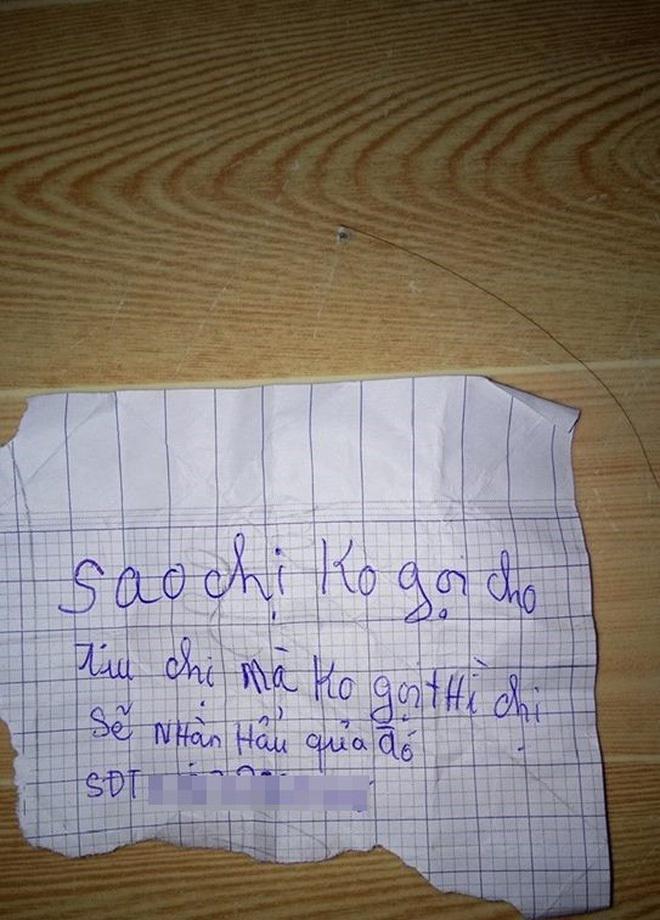 Sao chị Ko gọi cho
chị mà Ko gọi tHì chị
Sẽ NHận Hẩu quả đó
SĐT